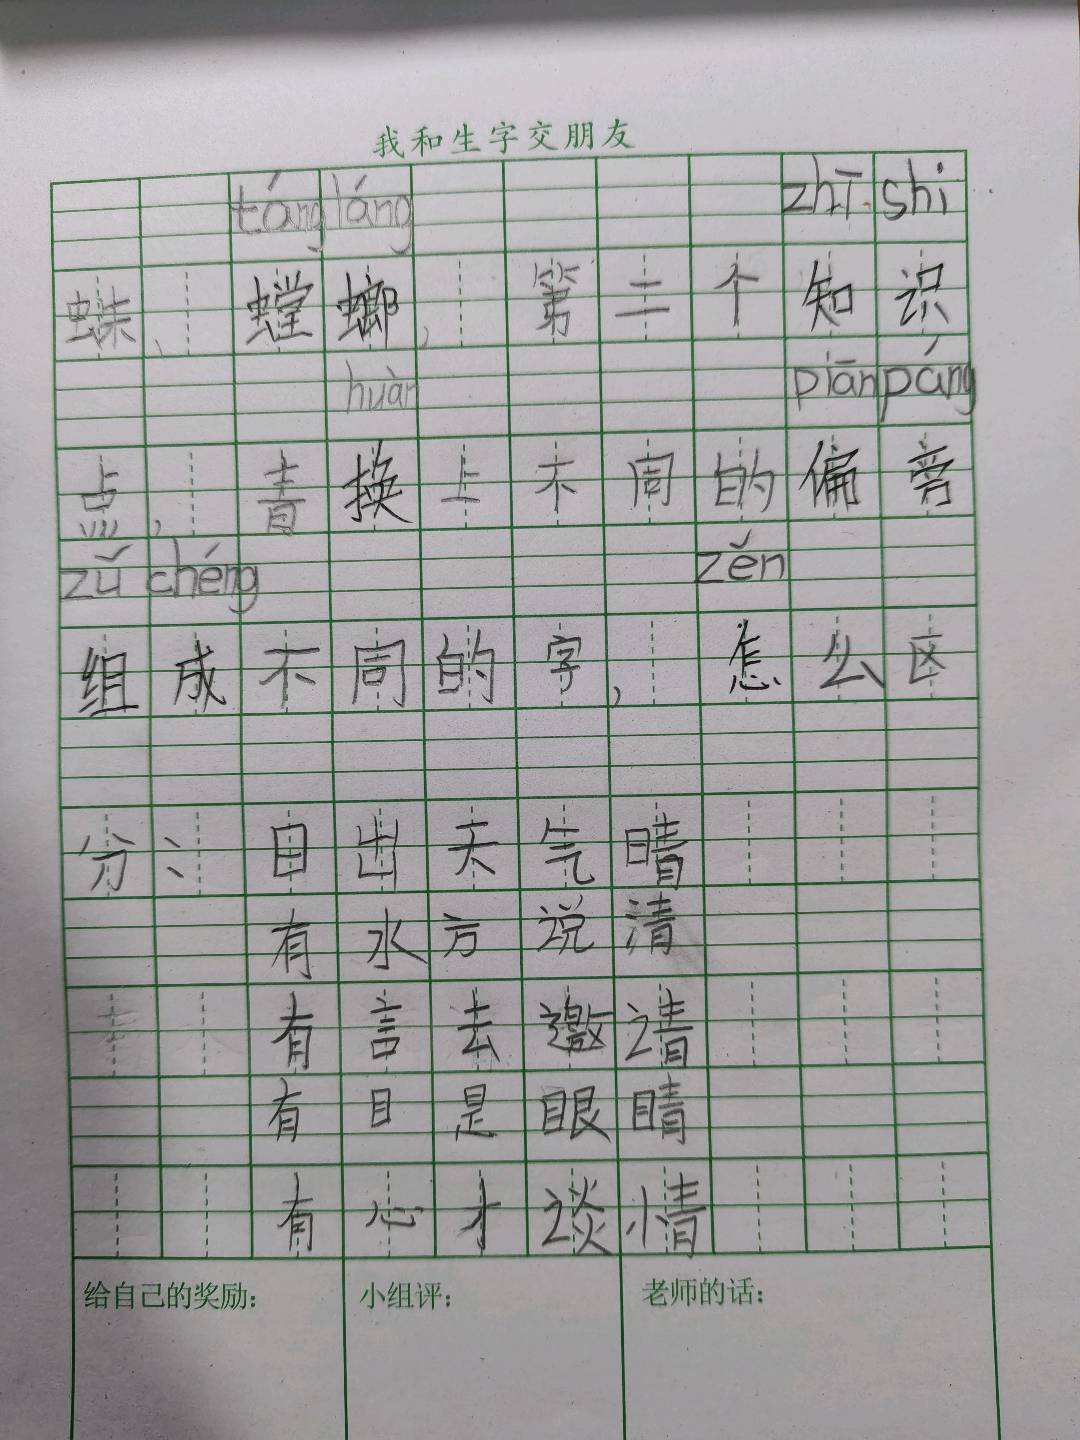 我和生字交朋友
táng láng zhī shi
蛛、螳螂,第二个知识
huàn piān páng
点,青换上不同的偏旁
zǔ chéng zěn
组成不同的字,怎么区
分:日出天气晴
有水方说清
有言去邀请
有目是眼睛
有心才谈情
给自己的奖励: 小组评: 老师的话: